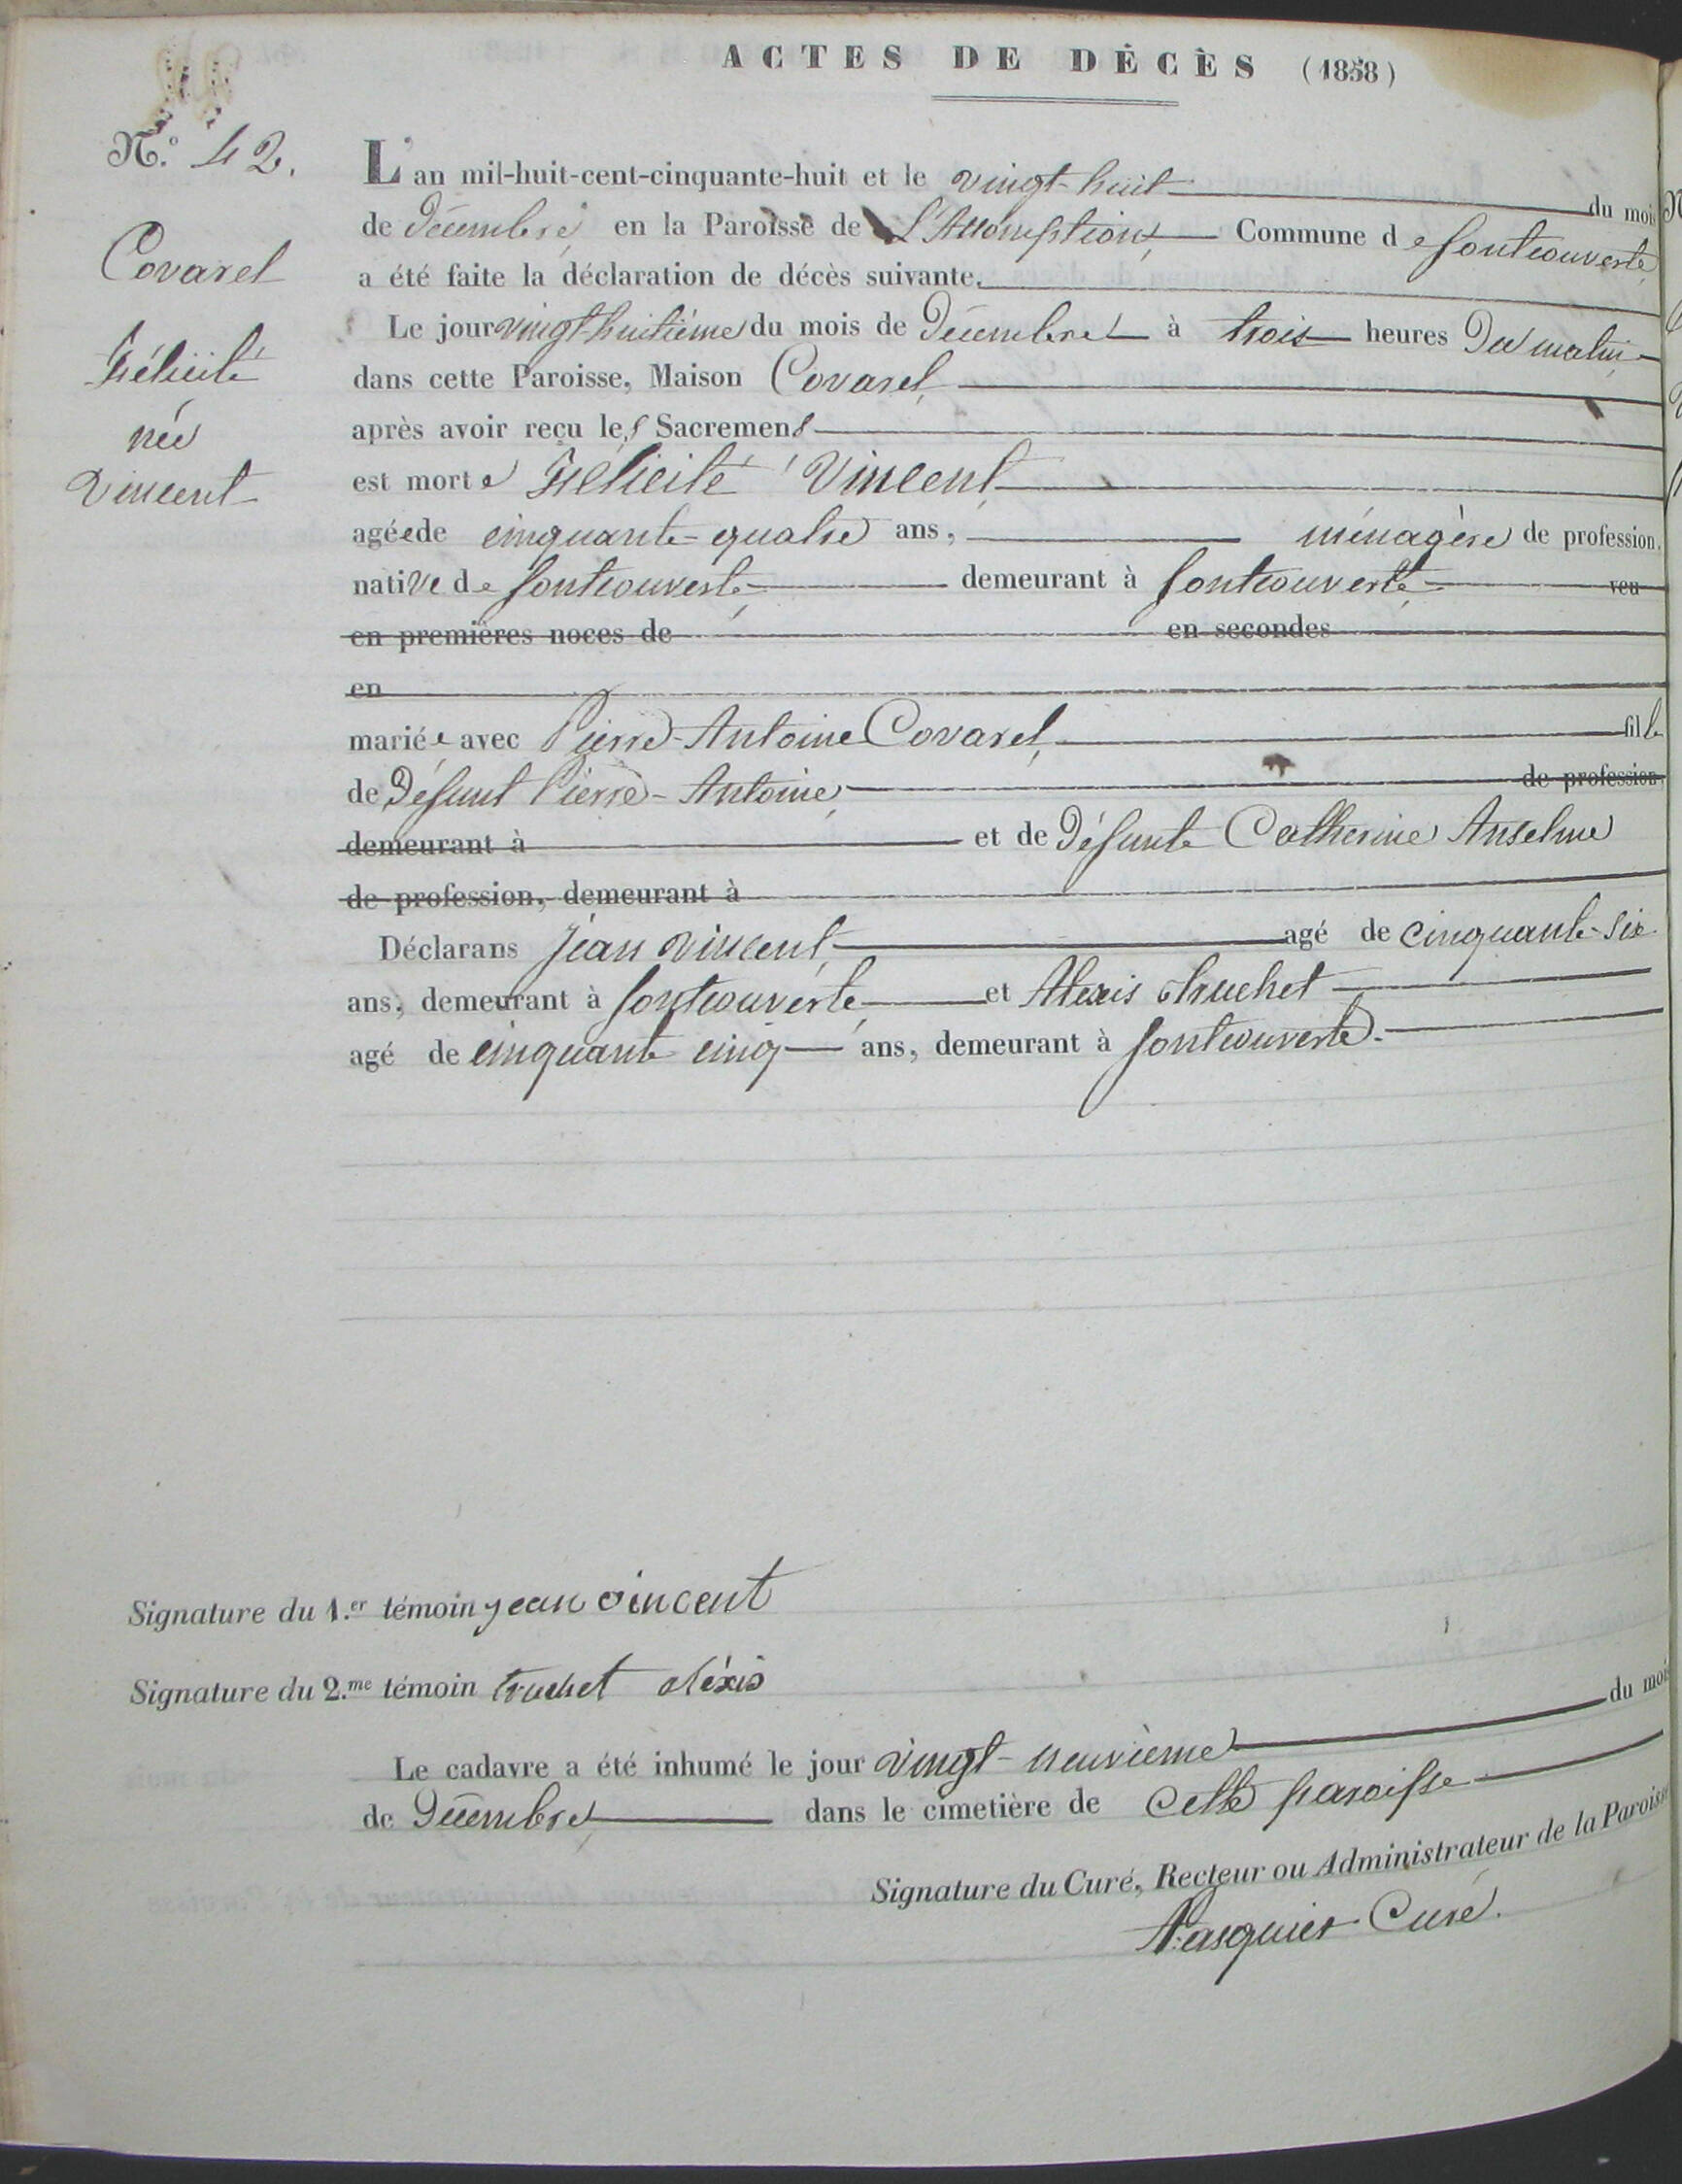 ACTES DE DÉCÈS (1858)
N.º 42.
Covarel
Félicité
née
Vincent
L'an mil-huit-cent-cinquante-huit et le vingt-huit du mois
de Décembre, en la Paroisse de L'Assomption, Commune de fontcouverte,
a été faite la déclaration de décès suivante.
Le jour vingt huitième du mois de Décembre à trois heures Du matin
dans cette Paroisse, Maison Covarel,
après avoir reçu les Sacremens
est morte Félicité Vincent,
agée de cinquante-quatre ans, ménagère de profession,
native de fontcouverte, demeurant à fontcouverte, veu
en premières noces de en secondes
en
mariée avec Pierre-Antoine Covarel, fille
de Défunt Pierre-Antoine, de profession,
demeurant à et de Défunte Catherine Anselme
de profession, demeurant à
Déclarans Jean Vincent, agé de cinquante-six
ans, demeurant à fontcouverte, et Alexis truchet
agé de cinquante cinq ans, demeurant à fontcouverte.
Signature du 1.er témoin jean vincent
Signature du 2.me témoin truchet aléxis
Le cadavre a été inhumé le jour vingt-neuvième du mois
de Décembre, dans le cimetière de cette paroisse
Signature du Curé, Recteur ou Administrateur de la Paroisse
Pasquier Curé.